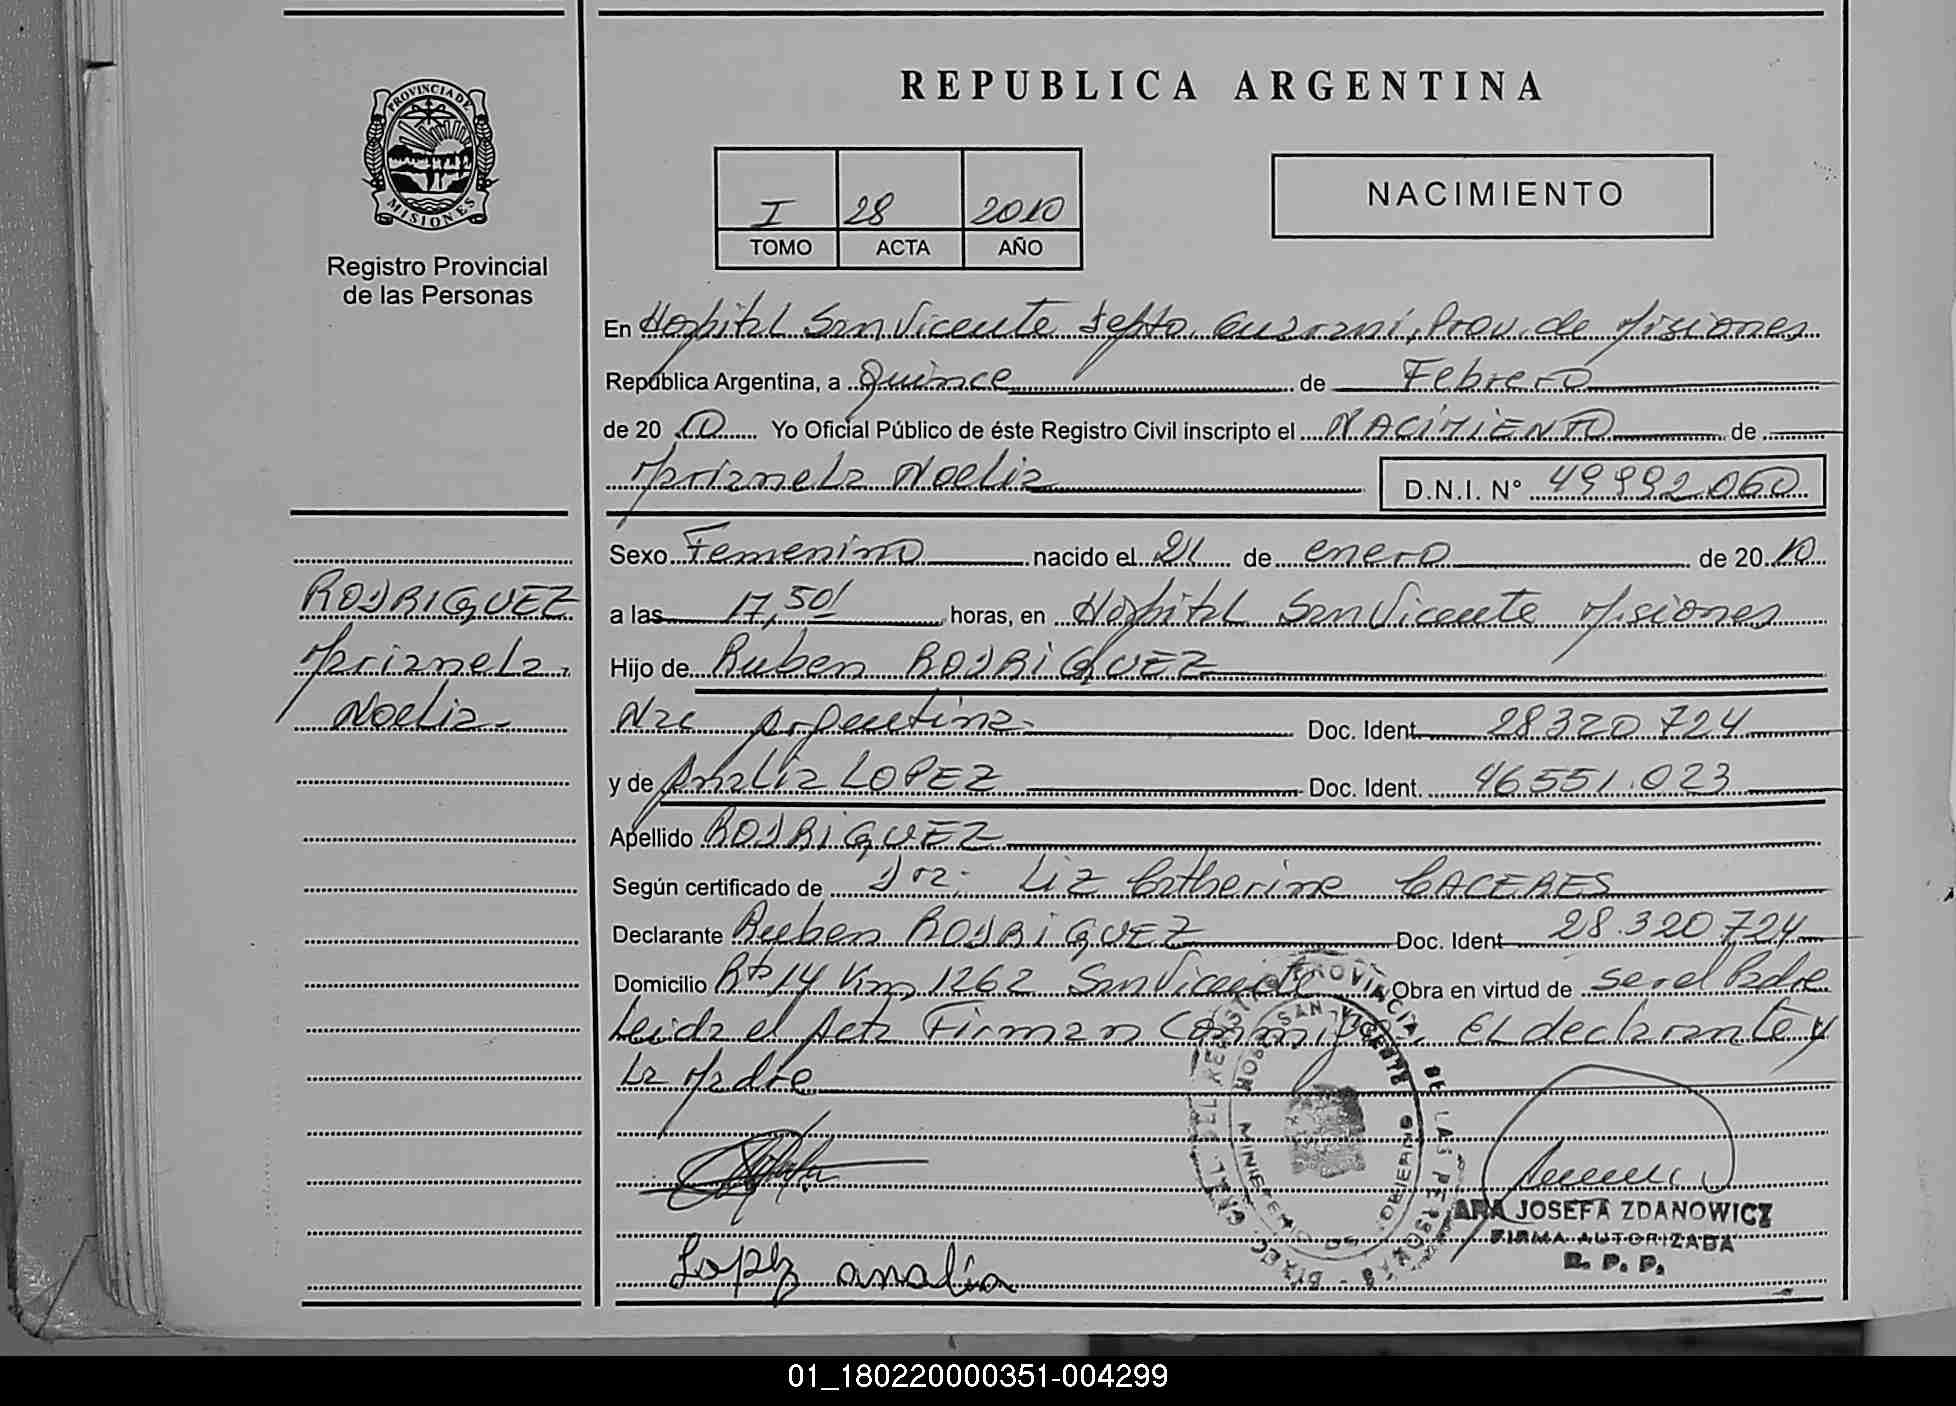 REPUBLICA ARGENTINA
PROVINCIA DE
MISIONES
Registro Provincial
de las Personas
I 28 2010
TOMO ACTA AÑO
NACIMIENTO
En Hospital San Vicente Depto. Guaraní, Prov. de Misiones
República Argentina, a Quince de Febrero
de 20 10 Yo Oficial Público de éste Registro Civil inscripto el NACIMIENTO de
Marianela Noelia D.N.I. N° 49992060
Sexo Femenino nacido el 21 de enero de 20 10
a las 17,50 horas, en Hospital San Vicente Misiones
Hijo de Ruben RODRIGUEZ
Nac Argentina Doc. Ident. 28320724
y de Analia LOPEZ Doc. Ident. 46551.023
Apellido RODRIGUEZ
Según certificado de Dra. Liz Catherine CACERES
Declarante Ruben RODRIGUEZ Doc. Ident 28.320.724
Domicilio Rta 14 Km 1262 San Vicente Obra en virtud de ser el Padre
Leida el Acta Firman Conmigo. El declarante y
La Madre
RODRIGUEZ
Marianela
Noelia
Lopez analia
JOSEFA ZDANOWICZ
FIRMA AUTORIZADA
R. P. P.
01_180220000351-004299